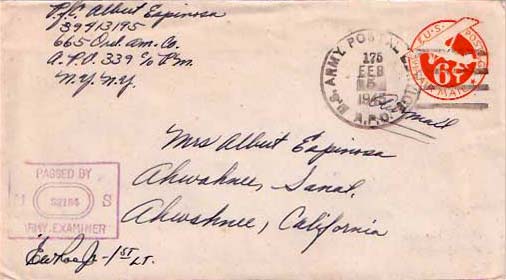 Pfc. Albert Espinosa
39413195
665 Ord. am. Co.
A.P.O. 339 c/o P.M.
N.Y. N.Y.
U.S. ARMY POSTAL
175
FEB
5
A.P.O.
U.S. POSTAGE
6¢
VIA AIR MAIL
Air mail
Mrs Albert Espinosa
Ahwahnee, Sanat.
Ahwahnee, California
PASSED BY
S
ARMY EXAMINER
1ST LT.